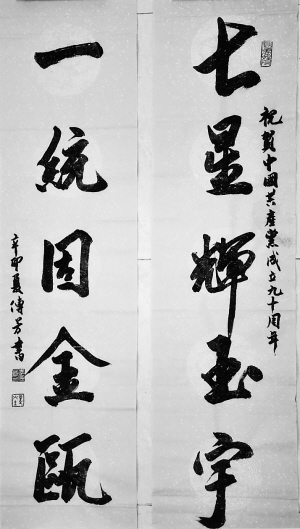 祝賀中國共產黨成立九十周年
七星輝玉宇
一統固金甌
辛卯夏傅芳書